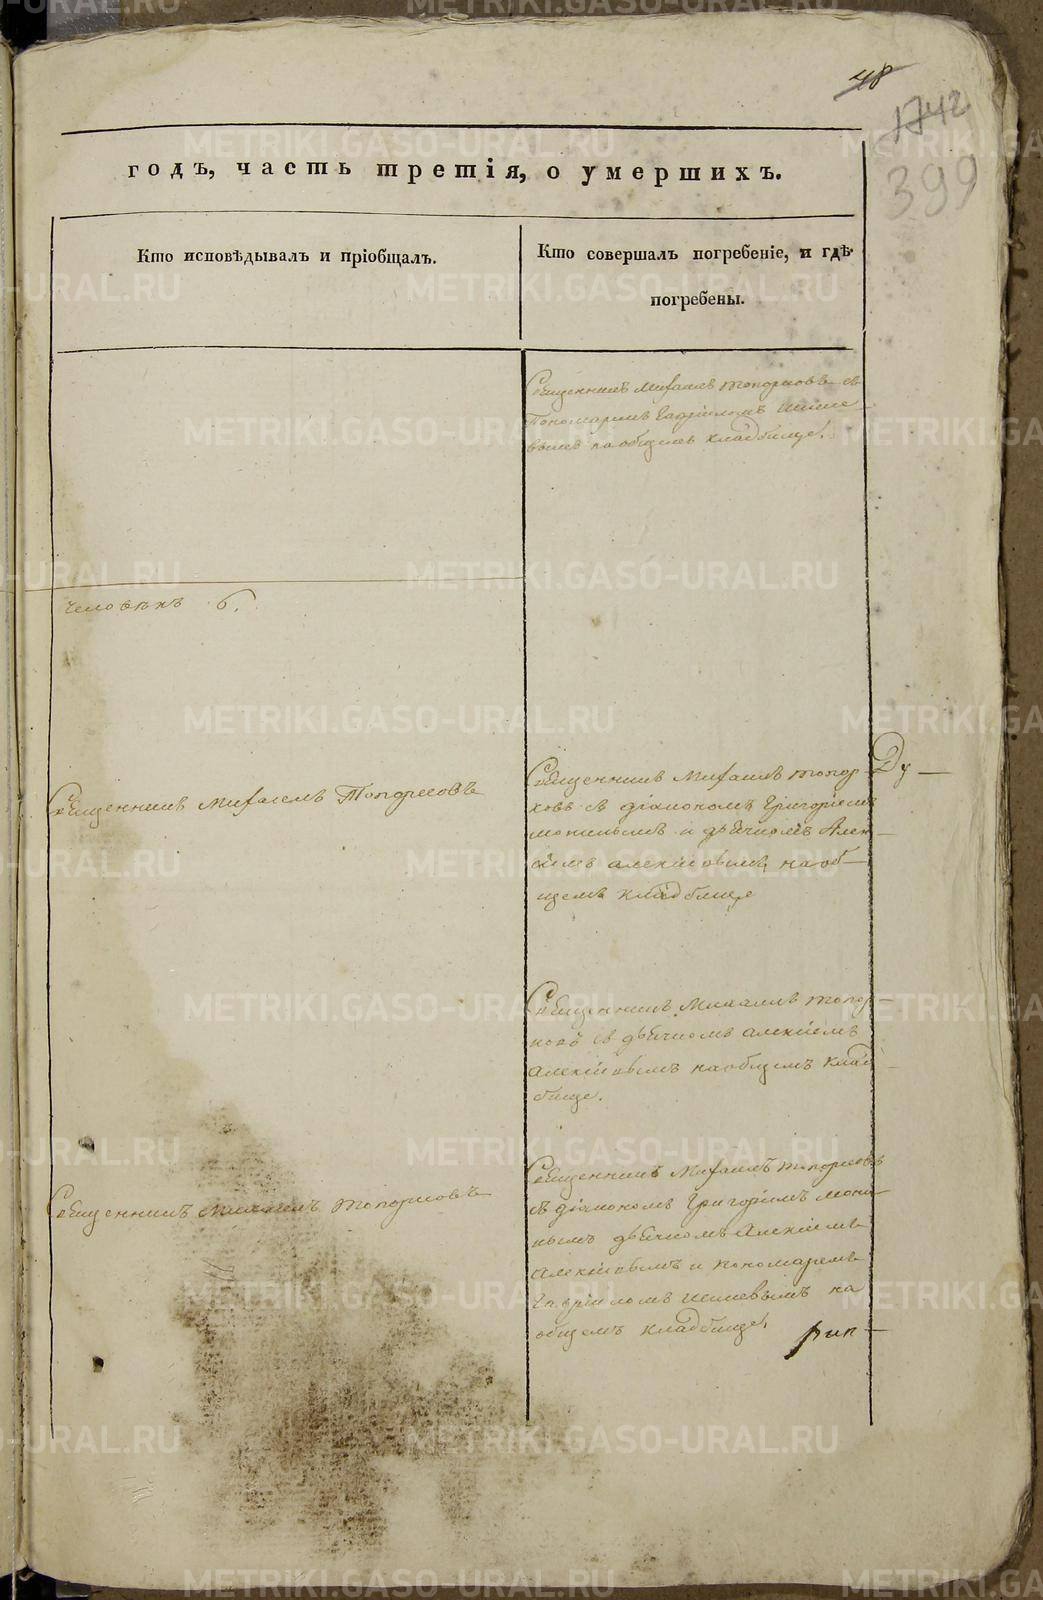 48
1742
399
годъ, часть третія, о умершихъ.
Кто исповѣдывалъ и пріобщалъ.
Кто совершалъ погребеніе, и гдѣ
погребены.
Священникъ Михаилъ Топорковъ съ
Пономаремъ Гавріиломъ Шише
вымъ на общемъ кладбище.
Человѣкъ 6.
Священникъ Михаилъ Топорковъ
Священникъ Михаилъ Топор
ковъ съ діакономъ Григоріемъ
и дьячкомъ Алек
сіемъ Алексіовымъ, на об
щемъ кладбище
Ду
Священникъ Михаилъ Топор
ковъ съ дьячкомъ Алексіемъ
Алексіовымъ на общемъ клад
бище.
Священникъ Михаилъ Топорковъ
Священникъ Михаилъ Топорковъ
съ діакономъ Григоріемъ
дьячкомъ Алексіемъ
Алексіовымъ и пономаремъ
Гавріиломъ Шишевымъ на
общемъ кладбище.
METRIKI.GASO-URAL.RU